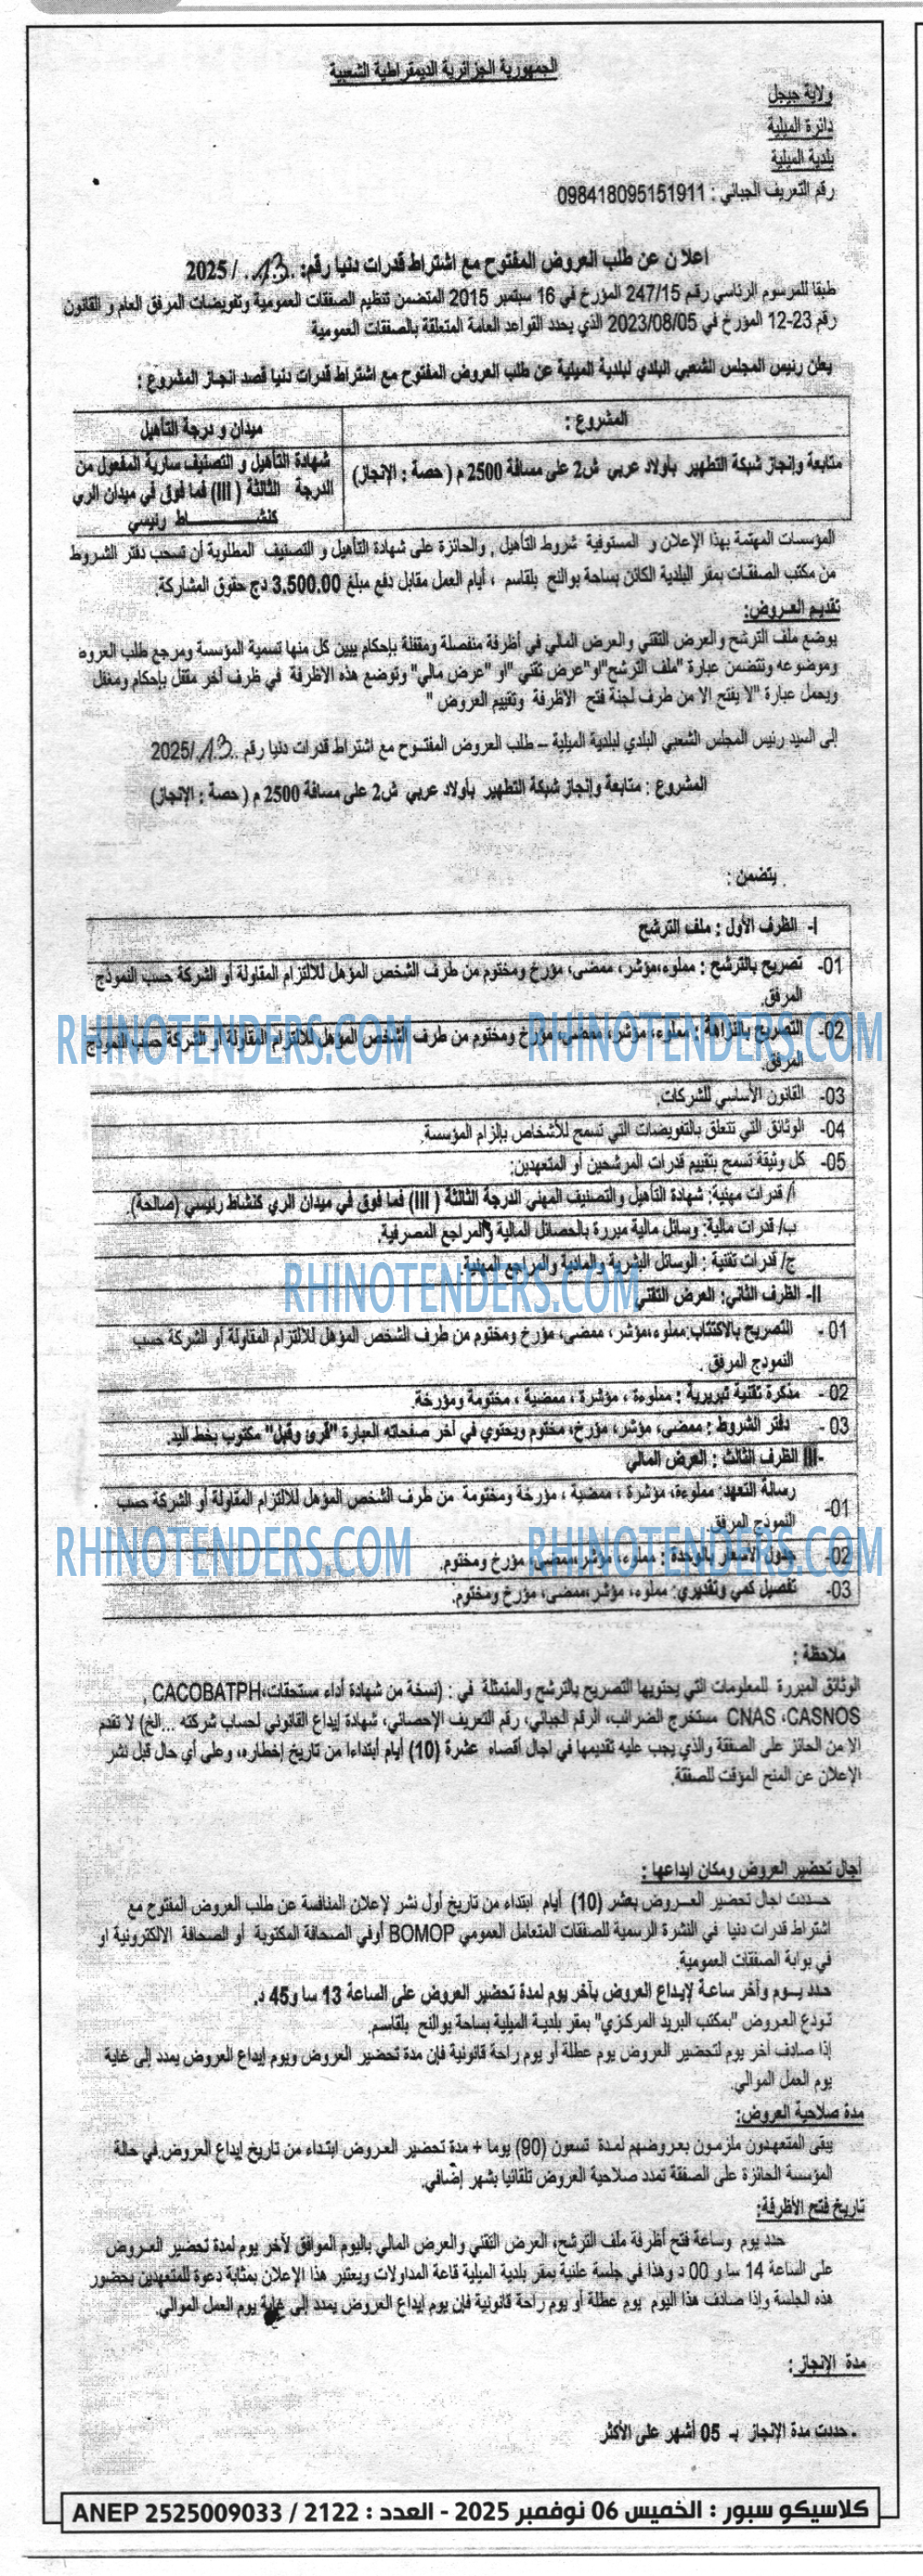 الجمهورية الجزائرية الديمقراطية الشعبية
ولاية جيجل
دائرة الميلية
بلدية الميلية
رقم التعريف الجبائي : 098418095151911
اعلان عن طلب العروض المفتوح مع اشتراط قدرات دنيا رقم: ..13.. / 2025
طبقا للمرسوم الرئاسي رقم 247/15 المؤرخ في 16 سبتمبر 2015 المتضمن تنظيم الصفقات العمومية وتفويضات المرفق العام و القانون
رقم 23-12 المؤرخ في 2023/08/05 الذي يحدد القواعد العامة المتعلقة بالصفقات العمومية
يعلن رئيس المجلس الشعبي البلدي لبلدية الميلية عن طلب العروض المفتوح مع اشتراط قدرات دنيا قصد انجاز المشروع :
المشروع :
ميدان و درجة التأهيل
متابعة وإنجاز شبكة التطهير بأولاد عربي ش2 على مسافة 2500 م ( حصة : الإنجاز)
شهادة التأهيل و التصنيف سارية المفعول من
الدرجة الثالثة ( III) فما فوق في ميدان الري
كنشـــــــــاط رئيسي
المؤسسات المهتمة بهذا الإعلان و المستوفية شروط التأهيل , والحائزة على شهادة التأهيل و التصنيف المطلوبة أن تسحب دفتر الشروط
من مكتب الصفقات بمقر البلدية الكائن بساحة بوالنح بلقاسم ، أيام العمل مقابل دفع مبلغ 3.500.00 دج حقوق المشاركة.
تقديم العـروض:
يوضع ملف الترشح والعرض التقني والعرض المالي في أظرفة منفصلة ومقفلة بإحكام يبين كل منها تسمية المؤسسة ومرجع طلب العروض
وموضوعه وتتضمن عبارة "ملف الترشح"او"عرض تقني "او "عرض مالي" وتوضع هذه الاظرفة في ظرف أخر مقفل بإحكام ومغفل
ويحمل عبارة "لا يفتح الا من طرف لجنة فتح الاظرفة وتقييم العروض "
إلى السيد رئيس المجلس الشعبي البلدي لبلدية الميلية – طلب العروض المفتـوح مع اشتراط قدرات دنيا رقم ..13../2025
المشروع : متابعة وإنجاز شبكة التطهير بأولاد عربي ش2 على مسافة 2500 م ( حصة : الإنجاز)
يتضمن :
I- الظرف الأول : ملف الترشح
01- تصريح بالترشح : مملوء،مؤشر، ممضى، مؤرخ ومختوم من طرف الشخص المؤهل للالتزام المقاولة أو الشركة حسب النموذج
المرفق.
02- التصريح بالنزاهة : مملوء، مؤشر، ممضي، مؤرخ ومختوم من طرف الشخص المؤهل للالتزام المقاولة أو الشركة حسب النموذج
المرفق.
RHINOTENDERS.COM RHINOTENDERS.COM
03- القانون الأساسي للشركات.
04- الوثائق التي تتعلق بالتفويضات التي تسمح للأشخاص بإلزام المؤسسة.
05- كل وثيقة تسمح بتقييم قدرات المرشحين أو المتعهدين:
أ/ قدرات مهنية: شهادة التأهيل والتصنيف المهني الدرجة الثالثة ( III) فما فوق في ميدان الري كنشاط رئيسي (صالحة).
ب/ قدرات مالية: وسائل مالية مبررة بالحصائل المالية والمراجع المصرفية.
ج/ قدرات تقنية : الوسائل البشرية والمادية والمراجع المهنية.
RHINOTENDERS.COM
II- الظرف الثاني: العرض التقني
01- التصريح بالاكتتاب:مملوء،مؤشر، ممضى، مؤرخ ومختوم من طرف الشخص المؤهل للالتزام المقاولة أو الشركة حسب
النموذج المرفق .
02- مذكرة تقنية تبريرية : مملوءة ، مؤشرة ، ممضية ، مختومة ومؤرخة.
03- دفتر الشروط : ممضى، مؤشر، مؤرخ، مختوم ويحتوي في أخر صفحاته العبارة "قرئ وقبل" مكتوب بخط اليد.
III- الظرف الثالث : العرض المالي
01- رسالة التعهد: مملوءة، مؤشرة ، ممضية ، مؤرخة ومختومة من طرف الشخص المؤهل للالتزام المقاولة أو الشركة حسب
النموذج المرفق.
RHINOTENDERS.COM RHINOTENDERS.COM
02- جدول الأسعار بالوحدة : مملوء، مؤشر،ممضى، مؤرخ ومختوم.
03- تفصيل كمي وتقديري: مملوء، مؤشر،ممضى، مؤرخ ومختوم.
ملاحظة :
الوثائق المبررة للمعلومات التي يحتويها التصريح بالترشح والمتمثلة في : (نسخة من شهادة أداء مستحقات،CACOBATPH ,
CNAS ،CASNOS مستخرج الضرائب، الرقم الجبائي، رقم التعريف الإحصائي، شهادة إيداع القانوني لحساب شركته ...الخ) لا تقدم
الا من الحائز على الصفقة والذي يجب عليه تقديمها في اجال أقصاه عشرة (10) أيام أبتداءا من تاريخ إخطاره، وعلى أي حال قبل نشر
الإعلان عن المنح المؤقت للصفقة.
أجال تحضير العروض ومكان ايداعها :
حـــددت اجال تحضير العـــروض بعشر (10) أيام ابتداء من تاريخ أول نشر لإعلان المنافسة عن طلب العروض المفتوح مع
اشتراط قدرات دنيا في النشرة الرسمية للصفقات المتعامل العمومي BOMOP أوفي الصحافة المكتوبة أو الصحافة الالكترونية او
في بوابة الصفقات العمومية.
حدد يــوم وآخر ساعـة لإيداع العروض بآخر يوم لمدة تحضير العروض على الساعة 13 سا و45 د.
تودع العروض "بمكتب البريد المركزي" بمقر بلديـة الميلية بساحة بوالنح بلقاسم.
إذا صادف آخر يوم لتحضير العروض يوم عطلة أو يوم راحة قانونية فإن مدة تحضير العروض ويوم إيداع العروض يمدد إلى غاية
يوم العمل الموالي.
مدة صلاحية العروض:
يبقى المتعهدون ملزمـون بعروضهم لمدة تسعون (90) يوما + مدة تحضير العـروض ابتـداء من تاريخ إيداع العروض.في حالة
المؤسسة الحائزة على الصفقة تمدد صلاحية العروض تلقائيا بشهر إضافي.
تاريخ فتح الأظرفة:
حدد يوم وساعة فتح أظرفة ملف الترشح، العرض التقني والعرض المالي باليوم الموافق لأخر يوم لمدة تحضير العـروض
على الساعة 14 سا و 00 د وهذا في جلسة علنية بمقر بلدية الميلية قاعة المداولات ويعتبر هذا الإعلان بمثابة دعوة للمتعهدين بحضور
هذه الجلسة وإذا صادف هذا اليوم يوم عطلة أو يوم راحة قانونية فإن يوم ايداع العروض يمدد إلى غاية يوم العمل الموالي.
مدة الإنجاز :
- حددت مدة الإنجاز بـ 05 أشهر على الأكثر
كلاسيكو سبور : الخميس 06 نوفمبر 2025 - العدد : 2122 / ANEP 2525009033